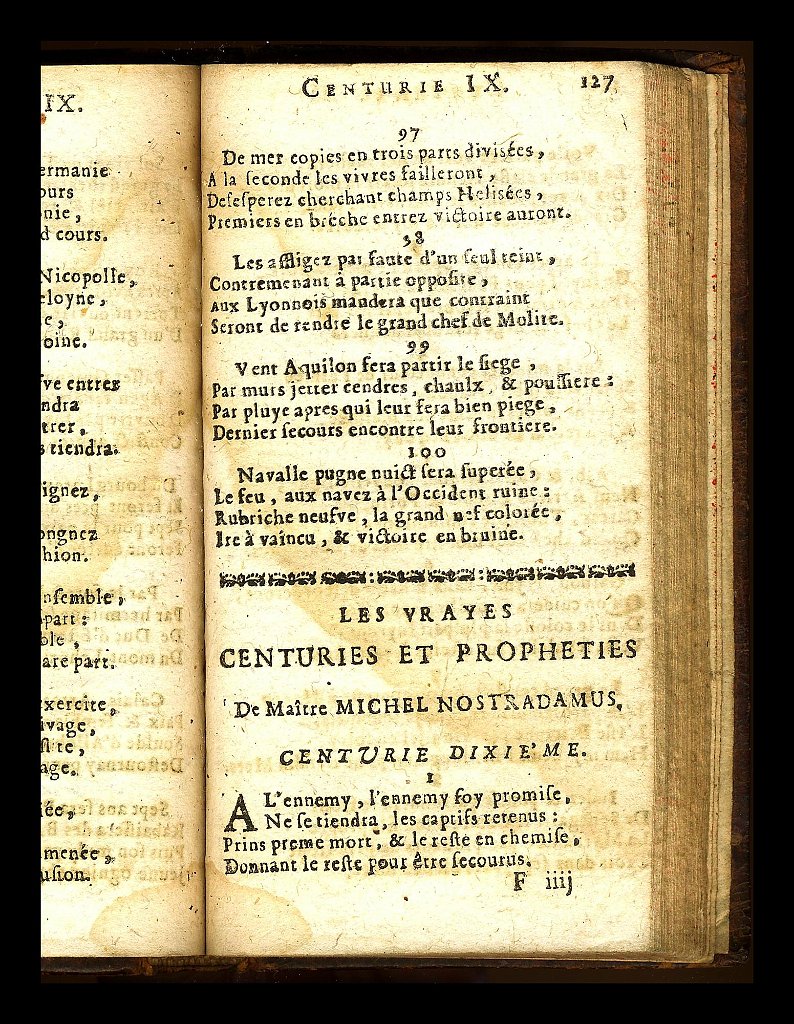 IX.
ermanie
ours
nie,
d cours.
Nicopolle,
eloyne,
e,
oine.
fve entrer
ndra
trer,
s tiendra.
ignez,
ongnez
hion.
nſemble,
part:
ble,
are part.
xercite,
ivage,
ſite,
age.
ée,
menée,
uſion.
CENTURIE IX. 127
97
De mer copies en trois parts diviſées,
A la ſeconde les vivres failleront,
Deſeſperez cherchant champs Heliſées,
Premiers en bréche entrez victoire auront.
38
Les affligez par faute d'un ſeul teint,
Contremenant à partie oppoſite,
Aux Lyonnois mandera que contraint
Seront de rendre le grand chef de Molite.
99
Vent Aquilon fera partir le ſiege,
Par murs jetter cendres, chaulx, & pouſſiere:
Par pluye apres qui leur fera bien piege,
Dernier ſecours encontre leur frontiere.
100
Navalle pugne nuict ſera ſuperée,
Le feu, aux navez à l'Occident ruine:
Rubriche neufve, la grand nef colorée,
Ire à vaincu, & victoire en bruine.
LES VRAYES
CENTURIES ET PROPHETIES
De Maître MICHEL NOSTRADAMUS,
CENTURIE DIXIE'ME.
1
A L'ennemy, l'ennemy foy promiſe,
Ne ſe tiendra, les captifs retenus:
Prins preme mort, & le reſte en chemiſe,
Donnant le reſte pour être ſecourus.
F iiij